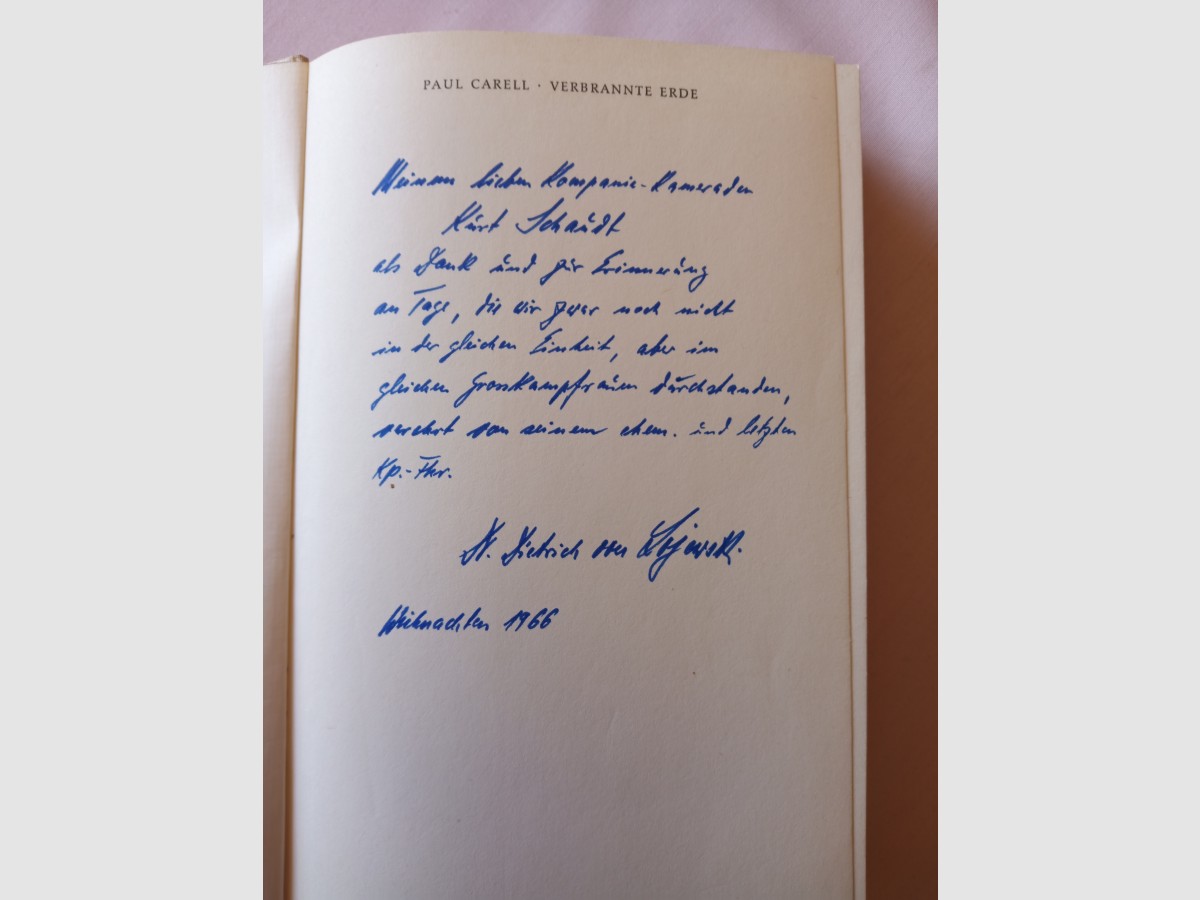 PAUL CARELL · VERBRANNTE ERDE
Meinem lieben Kompanie-Kameraden
Kurt Schaudt
als Dank und zur Erinnerung
an Tage, die wir zwar noch nicht
in der gleichen Einheit, aber im
gleichen Grosskampfraum durchstanden,
verehrt von seinem ehem. und letzten
Kp.-Fhr.
Dr. Dietrich von Lojewski
Weihnachten 1966